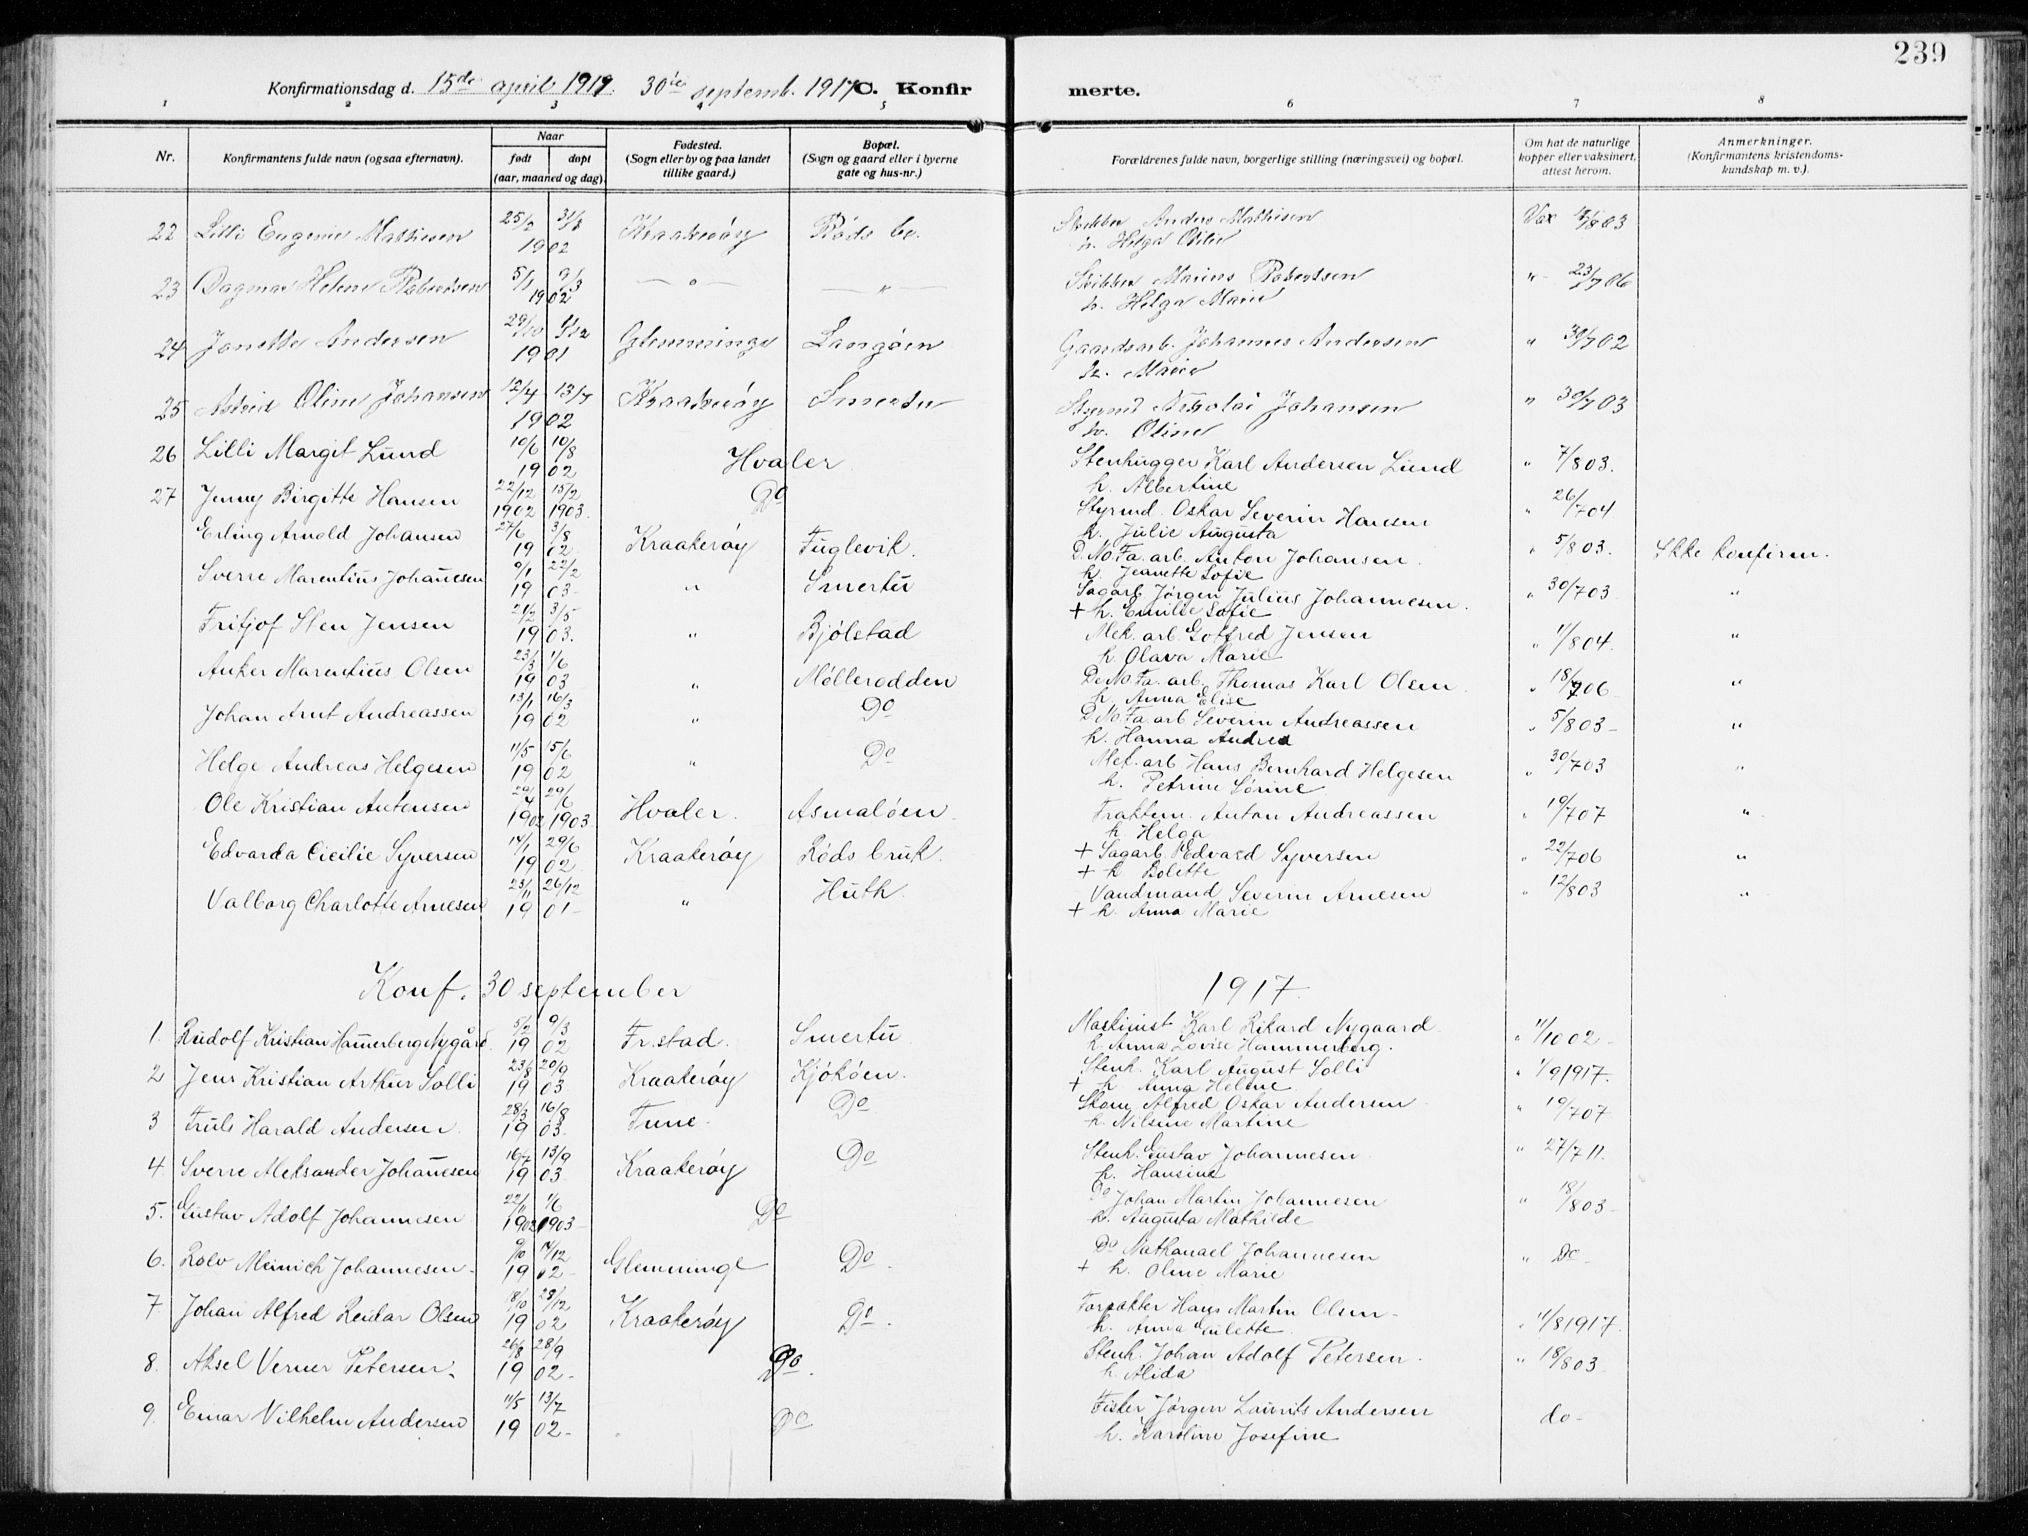 239
Konfirmationsdag d. 15de april 1917. 30te septemb. 1917 C. Konfirmerte.
1 2 3 4 5 6 7 8
Nr. Konfirmantens fulde navn (ogsaa efternavn). Naar født døpt (aar, maaned og dag). Fødested. (Sogn eller by og paa landet tillike gaard.) Bopæl. (Sogn og gaard eller i byerne gate og hus-nr.) Forældrenes fulde navn, borgerlige stilling (næringsvei) og bopæl. Om hat de naturlige kopper eller vaksinert, attest herom. Anmerkninger. (Konfirmantens kristendomskundskap m. v.).
22 Lilli Eugenie Mathisen 25/2 31/3 1902 Kraakerøy Røds br. Skibber Anders Mathisen Vax
h. Helga Otilie
23 Dagmar Helene Robertsen 5/1 9/3 1902 — " — — " — Skibber Marius Robertsen " 23/7 06
h. Helga Marie
24 Janette Andersen 29/10 1901 Glemminge Langøen Gaardsarb. Johannes Andersen " 30/7 02
h. Marie
25 Astrid Oline Johansen 12/4 13/7 1902 Kraakerøy Smertu Styrmd Nikolai Johansen " 30/7 03
h. Oline
26 Lilli Margit Lund 10/6 10/8 1902 Hvaler Stenhugger Karl Andersen Lund " 7/8 03.
h. Albertine
27 Jenny Birgitte Hansen 22/12 1902 15/2 1903. Do Styrmd. Oskar Severin Hansen " 26/7 04
h. Julie Augusta
Erling Arnold Johansen 27/6 3/8 1902 Kraakerøy Fuglevik. D.No.Fa. arb. Anton Johansen. " 5/8 03. Ikke konfirm.
h. Jeanette Sofie
Sverre Marentius Johannesen 9/1 22/2 1903 " Smertu Sagarb. Jørgen Julius Johannesen. " 30/7 03 "
+ h. Emilie Sofie
Fritjof Sten Jensen 21/2 3/5 1903. " Bjølstad Mek. arb. Gotfred Jensen " 1/8 04. "
h. Olava Marie
Anker Marentius Olsen 23/3 1/6 1903 " Møllerodden De No. Fa. arb. Thomas Karl Olsen. " 18/7 06 "
h. Anna Elise
Johan Arnt Andreassen 13/1 16/3 1902 " Do D.No.Fa. arb Severin Andreassen " 5/8 03 - "
h. Hanna Andrea
Helge Andreas Helgesen 11/5 15/6 1902 " Do Mek. arb Hans Bernhard Helgesen " 30/7 03 "
h. Petrine Sørine
Ole Kristian Antonsen 1902 29/6 1903. Hvaler. Asmaløen Anton Andreassen " 19/7 07 "
h. Helga
Edvarda Cicilie Syversen 14/1 29/6 1902 Kraakerøy Røds bruk. + Sagarb. Edvard Syversen " 22/7 06 "
+ h Bolette
Valborg Charlotte Arnesen 23/11 26/12 1901- " Huth. Vandmand Severin Arnesen " 12/8 03 "
+ h. Anna Marie
Konf. 30 september 1917.
1. Rudolf Kristian Hammerberg Nygård. 5/2 9/3 1902 Fr.stad. Smertu Maskinist Karl Rikard Nygaard. " 11/10 02 -
h. Anna Lovise Hammerberg.
2 Jens Kristian Arthur Solli 23/8 20/9 1903 Kraakerøy Kjøkøen. Stenh. Karl August Solli " 1/9 1917.
+ h. Anna Helene.
3 Truls Harald Andersen. 28/3 16/8 1903. Tune. Do Skom. Alfred Oskar Andersen. " 19/7 07.
h. Nilsine Martine
4. Sverre Aleksander Johannesen 16/7 13/9 1903. Kraakerøy Do Stenh. Gustav Johannesen. " 27/7 11.
h. Hansine
5. Gustav Adolf Johannesen 22/11 1902 1/6 1903- Do Do Johan Martin Johannesen " 18/8 03 -
h. Augusta Mathilde
6. Rolv Meinich Johannesen. 9/10 1902- Glemminge Do. Do Nathanael Johannesen " Do -
+ h. Oline Marie
7 Johan Alfred Reidar Olsen 8/10 28/12 1902 Kraakerøy Do. Forpakter Hans Martin Olsen - " 11/8 1917.
h. Anna Julette.
8. Aksel Verner Petersen. 26/8 28/9 1902- Do. Stenh. Johan Adolf Petersen. " 18/8 03 -
h. Alida
9. Einar Vilhelm Andersen 11/5 13/7 1902- Do Fisker Jørgen Laurits Andersen do -
h. Karoline Josefine